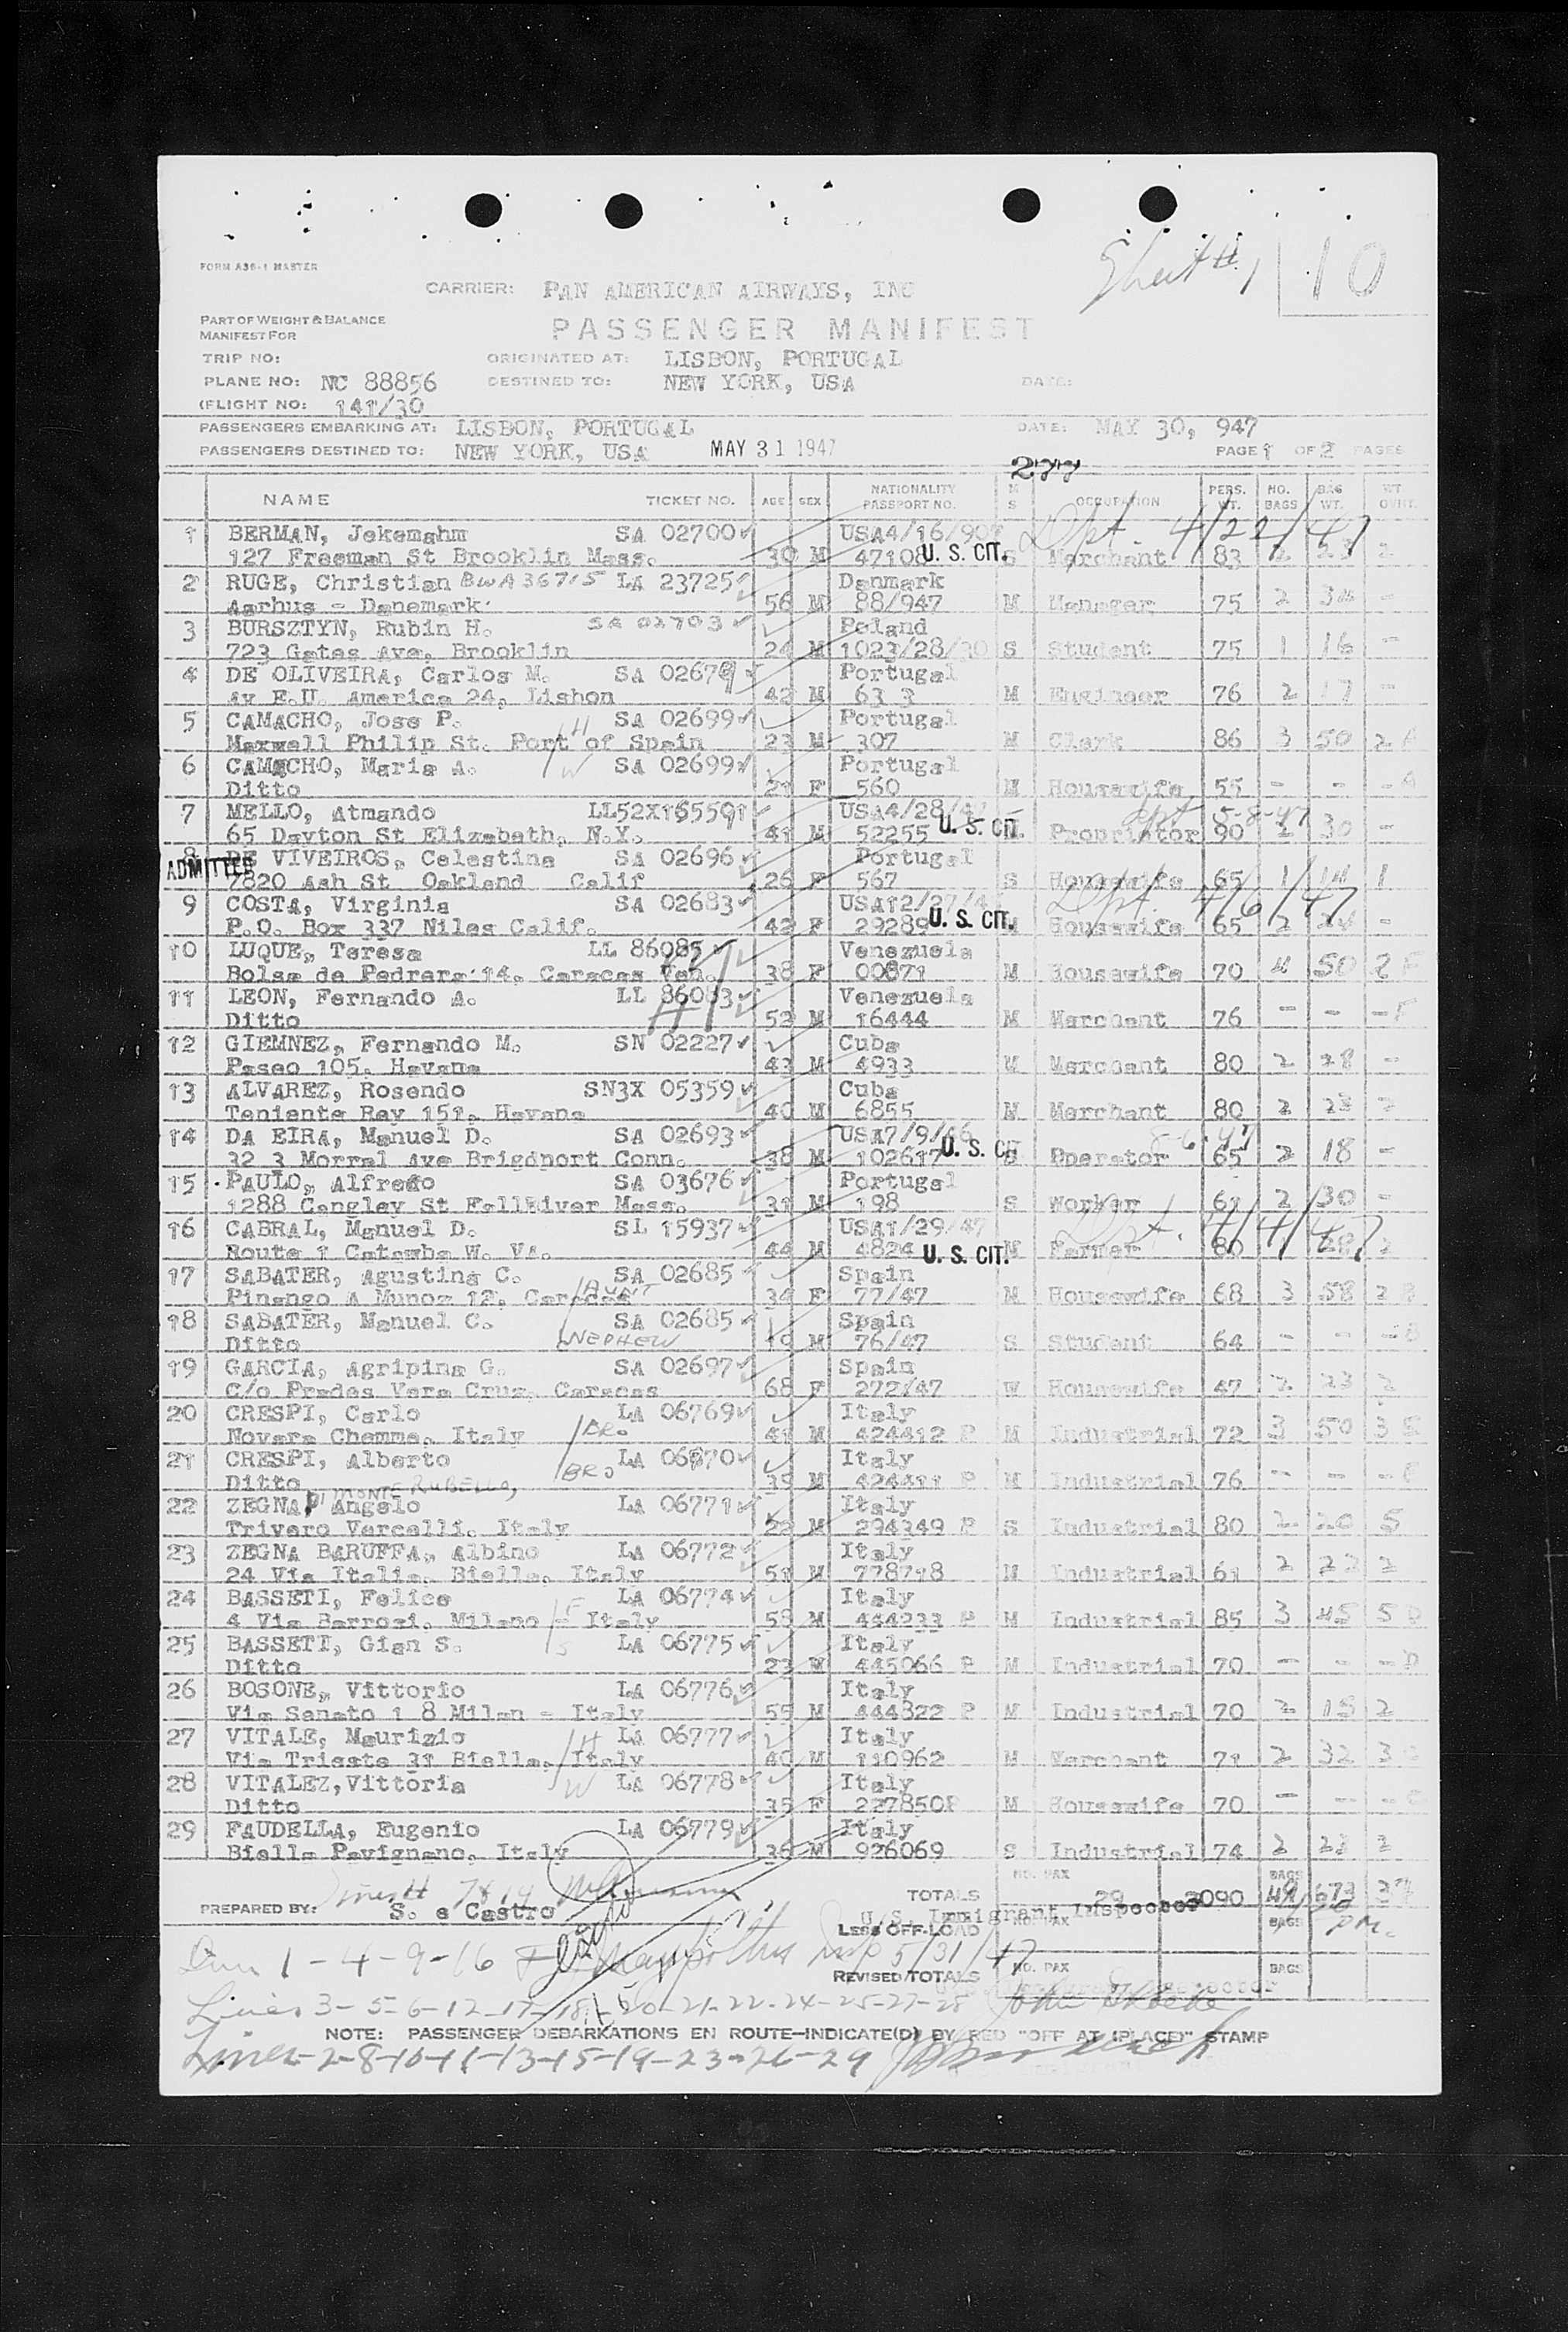 Sheet # 1 10
FORM A36-1 MASTER
CARRIER: PAN AMERICAN AIRWAYS, INC
PART OF WEIGHT & BALANCE
MANIFEST FOR
PASSENGER MANIFEST
TRIP NO: ORIGINATED AT: LISBON, PORTUGAL
PLANE NO: NC 88856 DESTINED TO: NEW YORK, USA DATE:
(FLIGHT NO: 141/30
PASSENGERS EMBARKING AT: LISBON, PORTUGAL DATE: MAY 30, 947
PASSENGERS DESTINED TO: NEW YORK, USA MAY 31 1947 PAGE 1 OF 2 PAGES
NAME TICKET NO. AGE SEX NATIONALITY PASSPORT NO. M S OCCUPATION PERS. WT. NO. BAGS BAG WT. WT.
1 BERMAN, Jekemahm SA 02700 USA4/16/90 Dpt. 4/22/47
127 Freeman St Brooklin Mass. 30 M 47108 U. S. CIT. S Merchant 83 2 23 2
2 RUGE, Christian BWA36715 LA 23725 Denmark
Aarhus - Danemark 56 M 88/947 M Manager 75 2 34 -
3 BURSZTYN, Rubin H. SA 02703 Poland
723 Gates Ave. Brooklin 24 M 1023/28/30 S Student 75 1 16 -
4 DE OLIVEIRA, Carlos M. SA 02679 Portugal
Av E.U. America 24, Lisbon 42 M 63 3 M Engineer 76 2 17 -
5 CAMACHO, Jose P. H SA 02699 Portugal
Maxwell Philip St. Port of Spain 23 M 307 M Clerk 86 3 50 2 A
6 CAMACHO, Maria A. W SA 02699 Portugal
Ditto 21 F 560 M Housewife 55 - - - A
7 MELLO, Atmando LL52X165591 USA4/28/47 dpt 5-8-47
65 Dayton St Elizabeth, N.Y. 41 M 52255 U. S. CIT. Proprietor 90 2 30 -
8 DE VIVEIROS, Celestina SA 02696 Portugal
ADMITTED 7820 Ash St Oakland Calif 26 F 567 S Housewife 65 1 14 1
9 COSTA, Virginia SA 02683 USA12/27/4 Dpt. 4/6/47
P.O. Box 337 Niles Calif. 42 F 29289 U. S. CIT. M Housewife 65 2 24 -
10 LUQUE, Teresa LL 86085 Venezuela
Bolsa de Pedrera 14, Caracas Ven. 38 F 00871 M Housewife 70 4 50 2 F
11 LEON, Fernando A. LL 86083 Venezuela
Ditto 52 M 16444 M Merchant 76 - - - F
12 GIEMNEZ, Fernando M. SN 02227 Cuba
Paseo 105, Havana 43 M 4933 M Merchant 80 2 28 -
13 ALVAREZ, Rosendo SN3X 05359 Cuba
Teniente Rey 151, Havana 40 M 6855 M Merchant 80 2 23 2
14 DA EIRA, Manuel D. SA 02693 USA7/9/46 8-6-47
32 3 Morral Ave Brigdport Conn. 38 M 102617 U. S. C S Operator 65 2 18 -
15 PAULO, Alfredo SA 03676 Portugal
1288 Cangley St FallRiver Mass. 31 M 198 S Worker 61 2 30 -
16 CABRAL, Manuel D. SL 15937 USA1/29/47 Dpt. 4/4/47
Route 1 Catawba W. VA. 44 M 4824 U. S. CIT. M Farmer 80 28 2
17 SABATER, Agustina C. SA 02685 Spain
Pinango A Munoz 12, Caracas AUNT 34 F 77/47 M Housewife 68 3 58 2 B
18 SABATER, Manuel C. SA 02685 Spain
Ditto NEPHEW 19 M 76/47 S Student 64 - - - B
19 GARCIA, Agripina G. SA 02697 Spain
C/o Prades Vera Cruz, Caracas 68 F 272/47 W Housewife 47 2 23 2
20 CRESPI, Carlo LA 06769 Italy
Novara Chemme, Italy BRO 41 M 424412 P M Industrial 72 3 50 3 E
21 CRESPI, Alberto BRO LA 06870 Italy
Ditto 35 M 424411 P M Industrial 76 - - - E
22 ZEGNA, DI MONTE RUBELLO, Angelo LA 06771 Italy
Trivero Vercelli, Italy 22 M 294349 P S Industrial 80 2 20 5
23 ZEGNA BARUFFA, Albino LA 06772 Italy
24 Via Italia, Biella, Italy 51 M 778718 M Industrial 61 2 22 2
24 BASSETI, Felice F LA 06774 Italy
4 Via Barrozi, Milano - Italy 58 M 444233 P M Industrial 85 3 45 5 D
25 BASSETI, Gian S. S LA 06775 Italy
Ditto 23 M 445066 P M Industrial 70 - - - D
26 BOSONE, Vittorio LA 06776 Italy
Via Senato 1 8 Milan - Italy 55 M 444822 P M Industrial 70 2 18 2
27 VITALE, Maurizio H LA 06777 Italy
Via Trieste 31 Biella, Italy 40 M 110962 M Merchant 71 2 32 3 C
28 VITALEZ, Vittoria W LA 06778 Italy
Ditto 35 F 227850P M Housewife 70 - - - C
29 FAUDELLA, Eugenio LA 06779 Italy
Biella Pavignano, Italy 36 M 926069 S Industrial 74 2 23 2
NO. PAX BAGS
TOTALS 29 2090 49 673 37
PREPARED BY: S. e Castro
U.S. Immigrant Inspector
LESS OFF-LOAD NO. PAX BAGS PM.
1 - 4 - 9 - 16 Insp 5/31/47
REVISED TOTALS NO. PAX BAGS
Lines 3-5-6-12-17-18-20-21-22-24-25-27-28
NOTE: PASSENGER DEBARKATIONS EN ROUTE-INDICATE(D) BY RED "OFF AT (PLACE)" STAMP
Lines-2-8-10-11-13-15-19-23-26-29